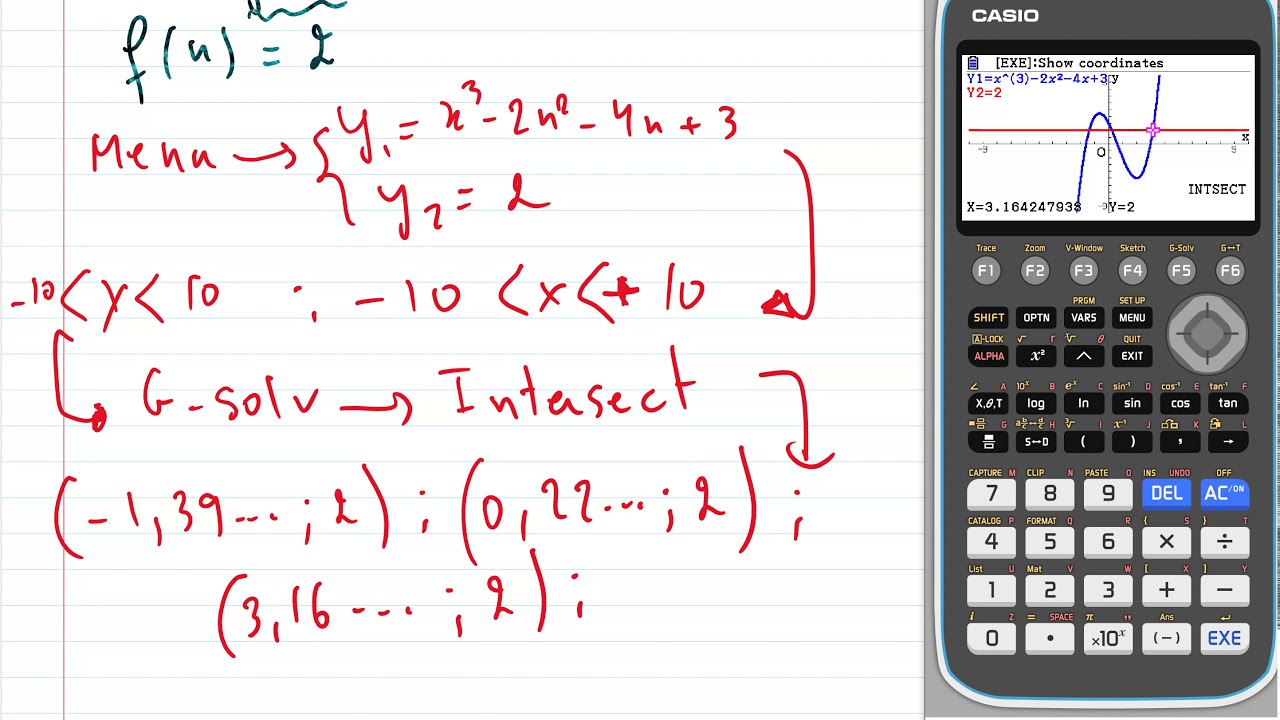 f(x) = 2
Menu → { y₁ = x³ - 2x² - 4x + 3
y₂ = 2
-10 < x < 10 ; -10 < x < + 10
G-solv → Intersect
(-1,39...; 2) ; (0,22...; 2) ;
(3,16 ....; 2) ;
CASIO
[EXE]:Show coordinates
Y1=x^(3)-2x²-4x+3
Y2=2
y
x
-9
9
O
-9
INTSECT
X=3.164247938 Y=2
Trace Zoom V-Window Sketch G-Solv G↔T
F1 F2 F3 F4 F5 F6
PRGM SET UP
SHIFT OPTN VARS MENU
A-LOCK √ r ˣ√ θ QUIT
ALPHA x² ^ EXIT
∠ A 10ˣ B eˣ C sin⁻¹ D cos⁻¹ E tan⁻¹ F
X,θ,T log ln sin cos tan
G H ³√ I x⁻¹ J K L
S↔D ( ) , →
CAPTURE M CLIP N PASTE O INS UNDO OFF
7 8 9 DEL AC/ON
CATALOG P FORMAT Q R { S } T
4 5 6 × ÷
List U Mat V W [ X ] Y
1 2 3 + −
i Z = SPACE π " Ans ↵
0 • ×10ˣ (−) EXE